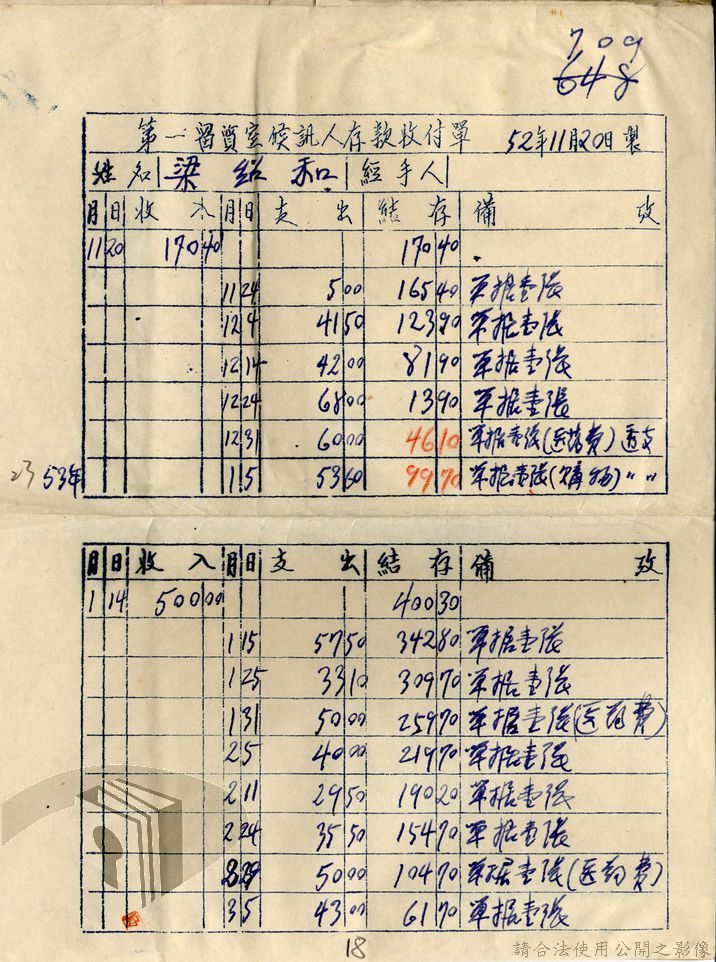 709
648
第一留質室候訊人存款收付單 52年11月20日 製
姓名 梁紹和 經手人
月 日 收入 月 日 支出 結存 備攷
11 20 170 40 170 40
11 24 5 00 165 40 單据壹張
12 4 41 50 123 90 單据壹張
12 14 42 00 81 90 單据壹張
12 24 68 00 13 90 單据壹張
12 31 60 00 46 10 單据壹張(医药費)透支
53年 1 5 53 60 99 70 單据壹張(購物)〃 〃
月 日 收入 月 日 支出 結存 備攷
1 14 500 00 400 30
1 15 57 50 342 80 單据壹張
1 25 33 10 309 70 單据壹張
1 31 50 00 259 70 單据壹張(医药費)
2 5 40 00 219 70 單据壹張
2 11 29 50 190 20 單据壹張
2 24 35 50 154 70 單据壹張
2 29 50 00 104 70 單据壹張(医药費)
3 5 43 00 61 70 單据壹張
18
請合法使用公開之影像